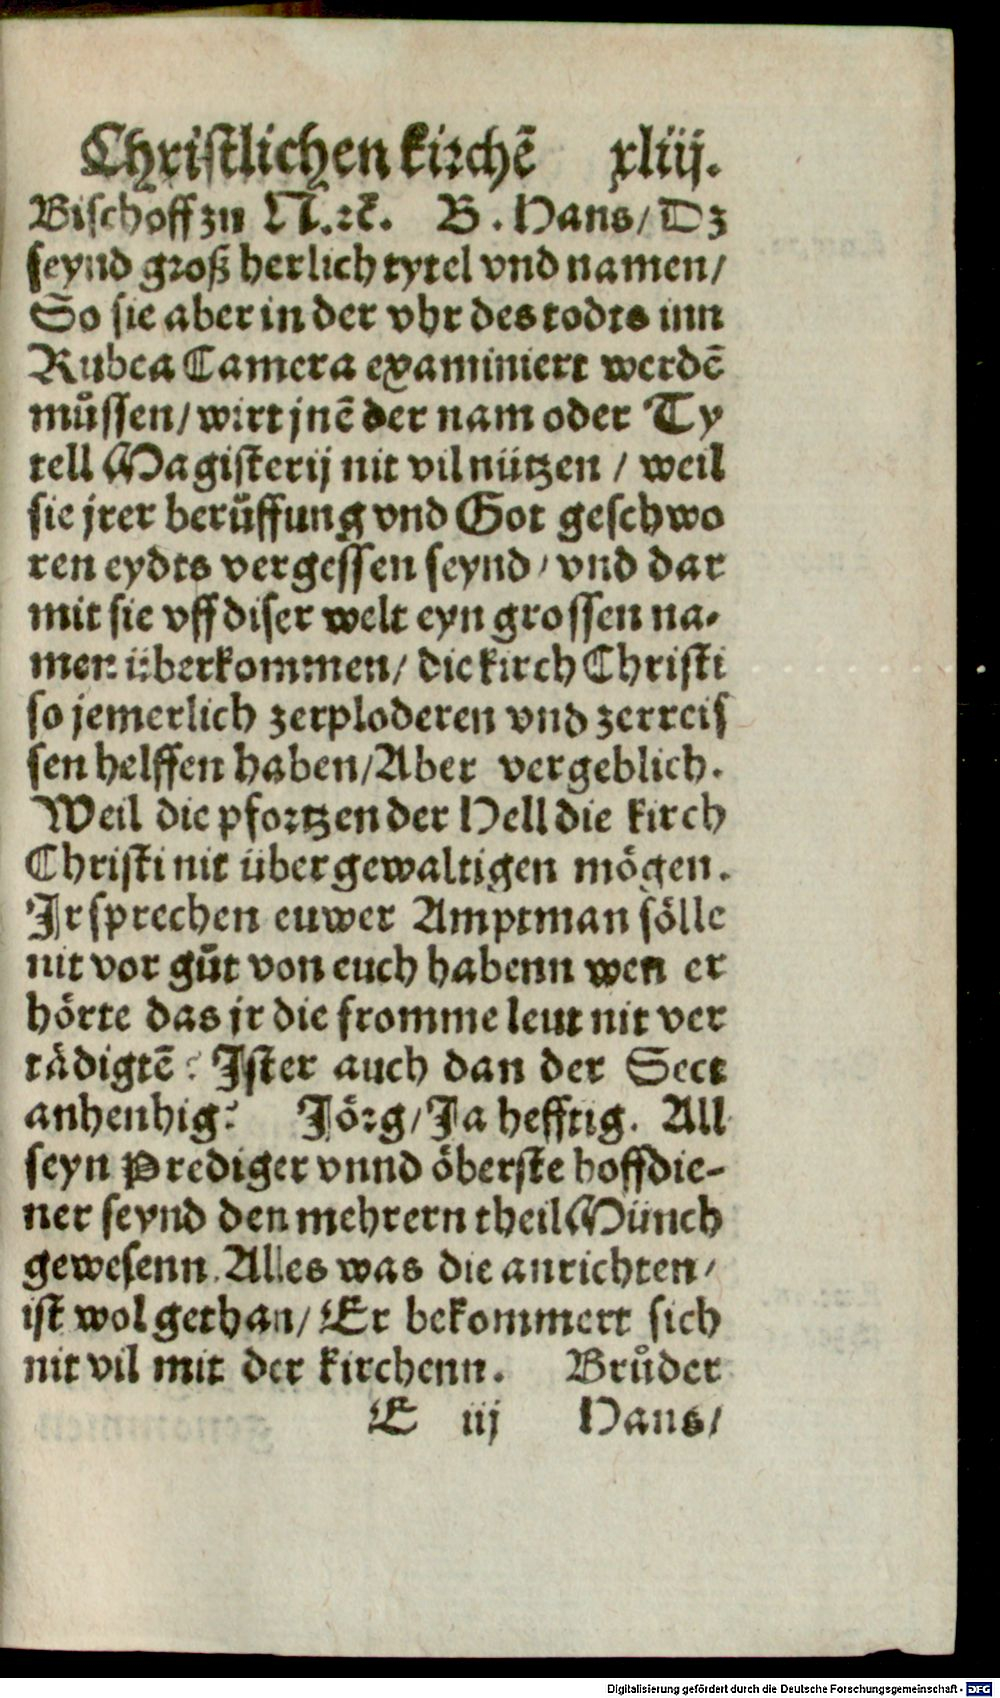 Christlichen kirchē xliij.
Bischoff zu N.ꝛc. B. Hans/ Dz
seynd groß herlich tytel vnd namen/
So sie aber in der vhr des todts inn
Rubea Camera examiniert werdē
müssen/ wirt jnē der nam oder Ty
tell Magisterij nit vil nützen / weil
sie jrer berüffung vnd Got geschwo
ren eydts vergessen seynd/ vnd dar
mit sie vff diser welt eyn grossen na-
men überkommen/ die kirch Christi
so jemerlich zerploderen vnd zerreis
sen helffen haben/ Aber vergeblich.
Weil die pfortzen der Hell die kirch
Christi nit über gewaltigen mögen.
Jr sprechen euwer Amptman sölle
nit vor gůt von euch habenn wen er
hörte das jr die fromme leut nit ver
tädigtē? Ist er auch dan der Sect
anhenhig? Jörg/ Ja hefftig. All
seyn Prediger vnnd öberste hoffdie-
ner seynd den mehrern theil Münch
gewesenn. Alles was die anrichten/
ist wol gethan/ Er bekommert sich
nit vil mit der kirchenn. Brůder
E iij Hans/
Digitalisierung gefördert durch die Deutsche Forschungsgemeinschaft - DFG